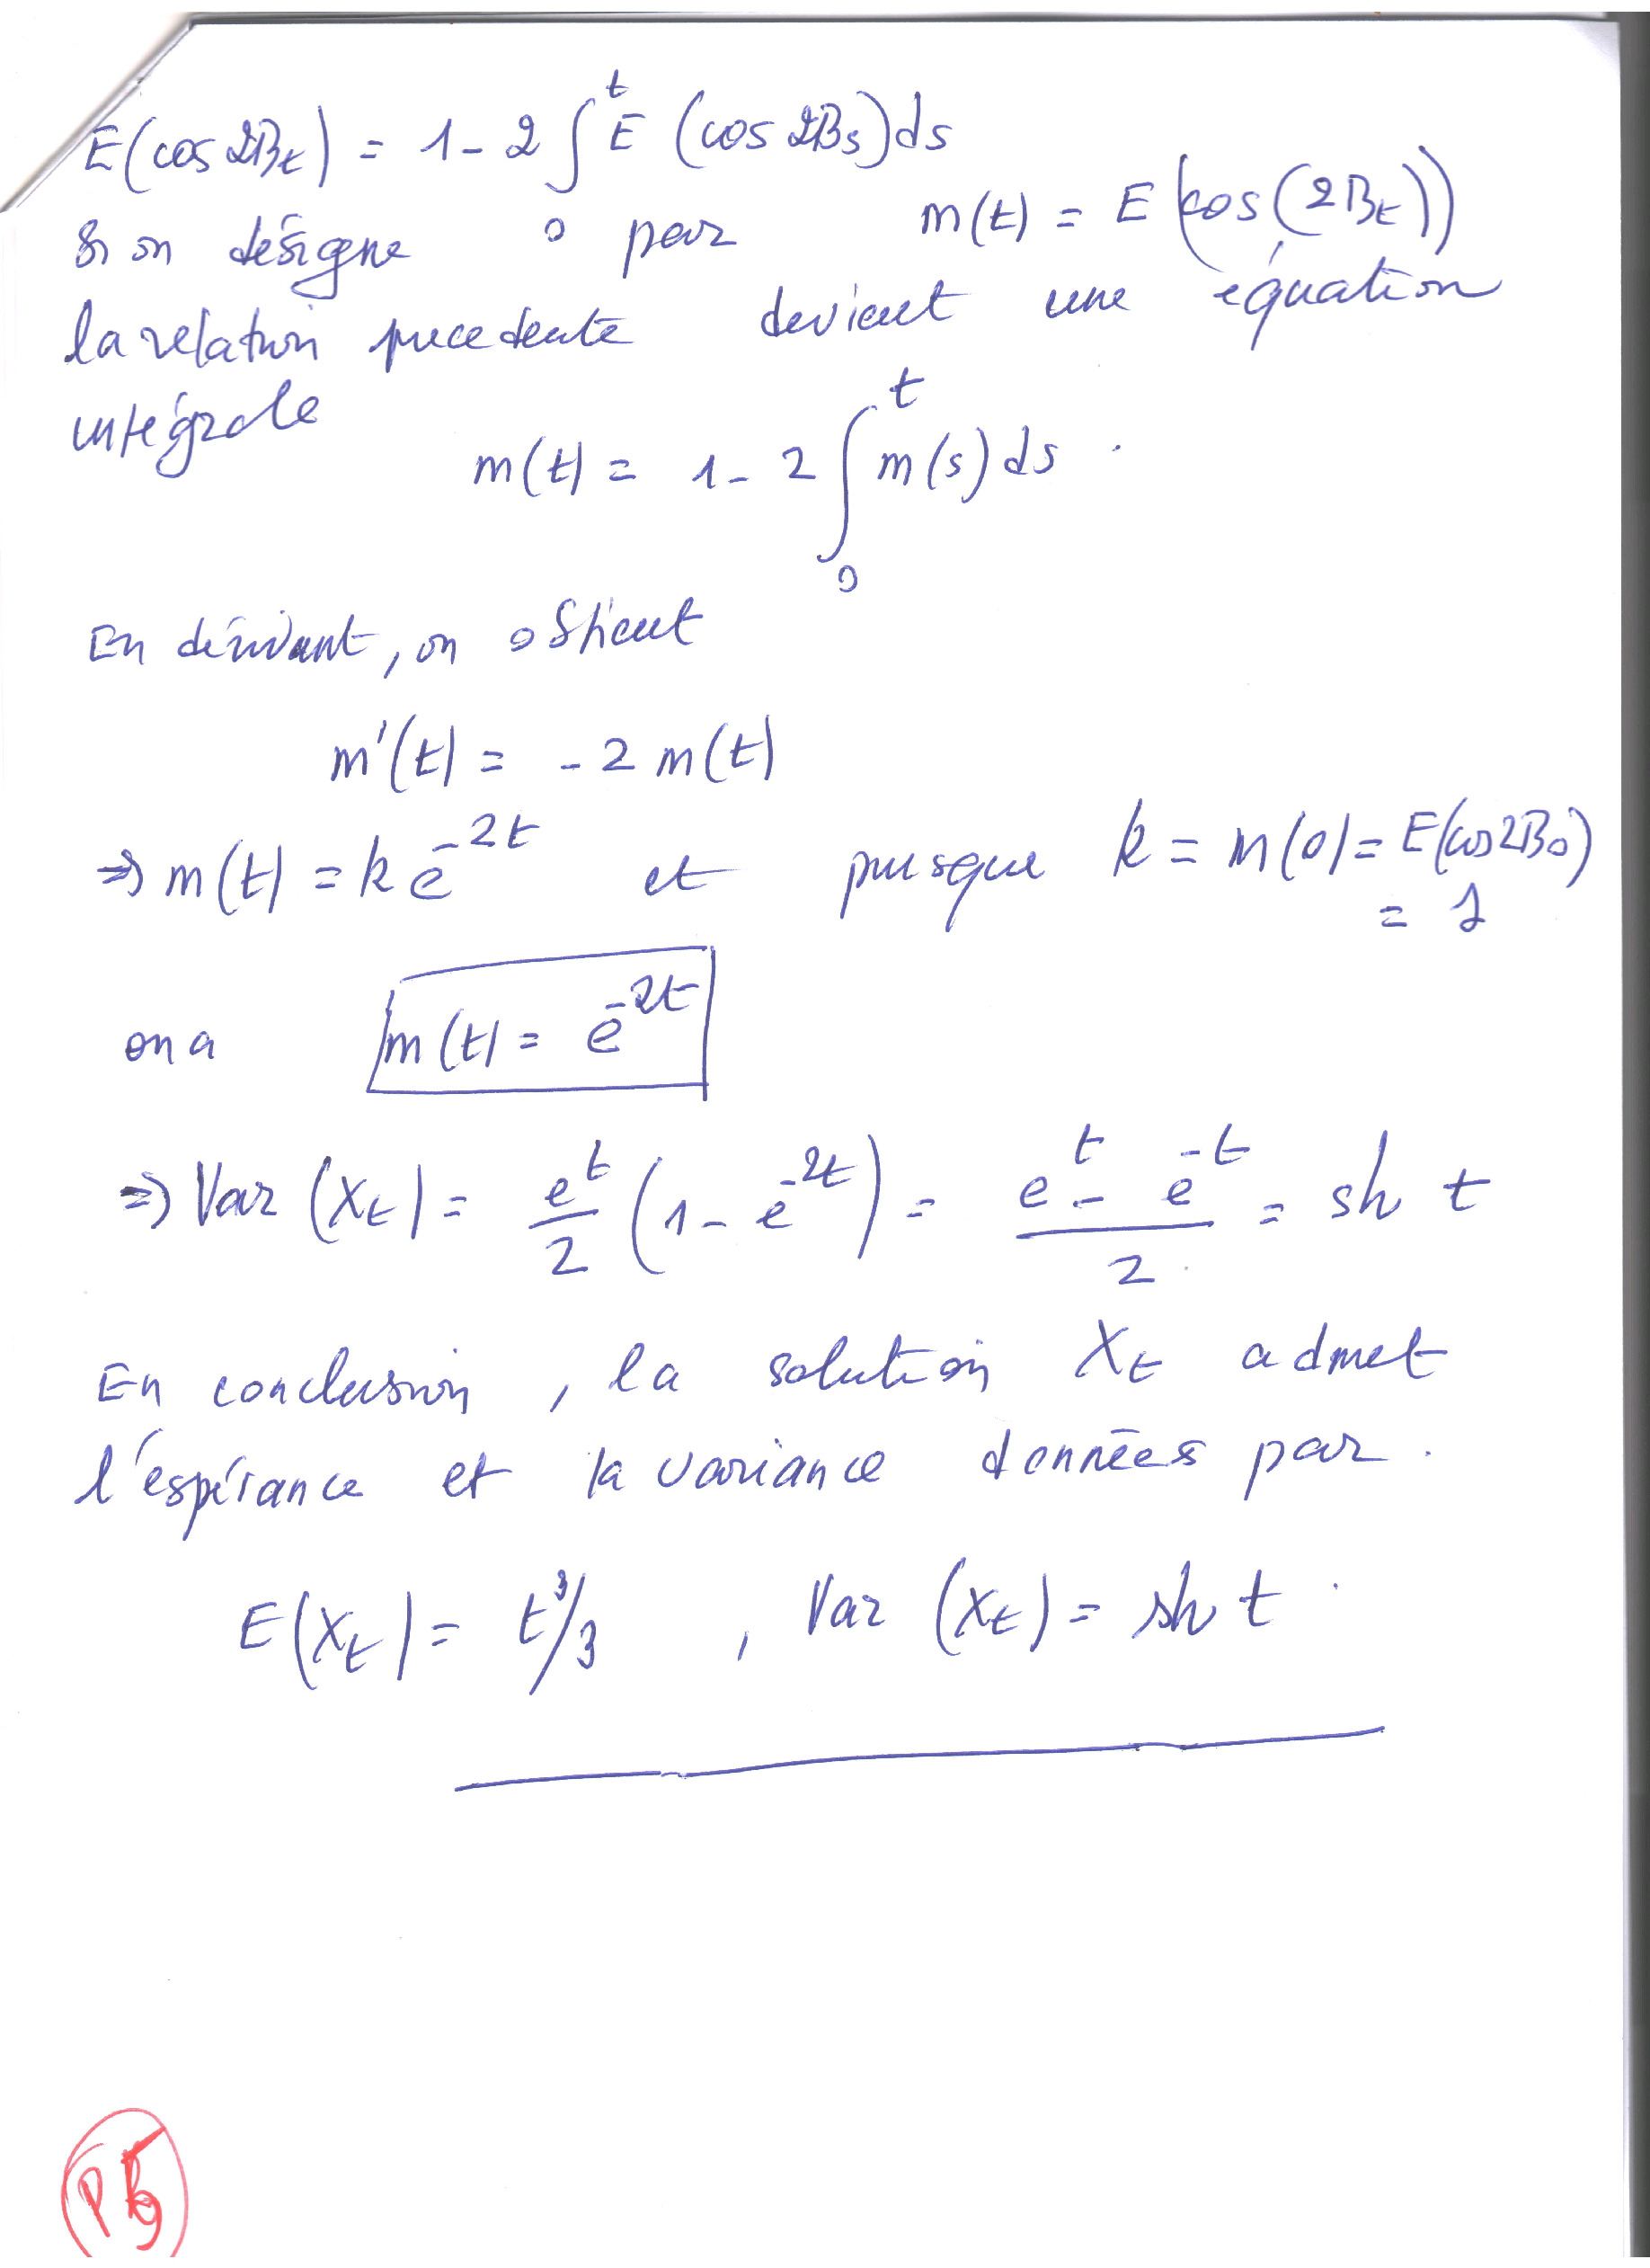 E(cos 2B_t) = 1 - 2 ∫_0^t E (cos 2B_s) ds
Si on désigne par m(t) = E(cos(2B_t))
la relation precedente devient une équation
intégrale
m(t) = 1 - 2 ∫_0^t m(s) ds .
En dérivant, on obtient
m'(t) = - 2 m(t)
⇒ m(t) = k e^{-2t} et puisque k = m(0) = E(cos 2B_0)
= 1
on a m(t) = e^{-2t}
⇒ Var (X_t) = e^t/2 (1 - e^{-2t}) = (e^t - e^{-t})/2 = sh t
En conclusion, la solution X_t admet
l'espérance et la variance données par .
E(X_t) = t³/3 , Var (X_t) = sh t .